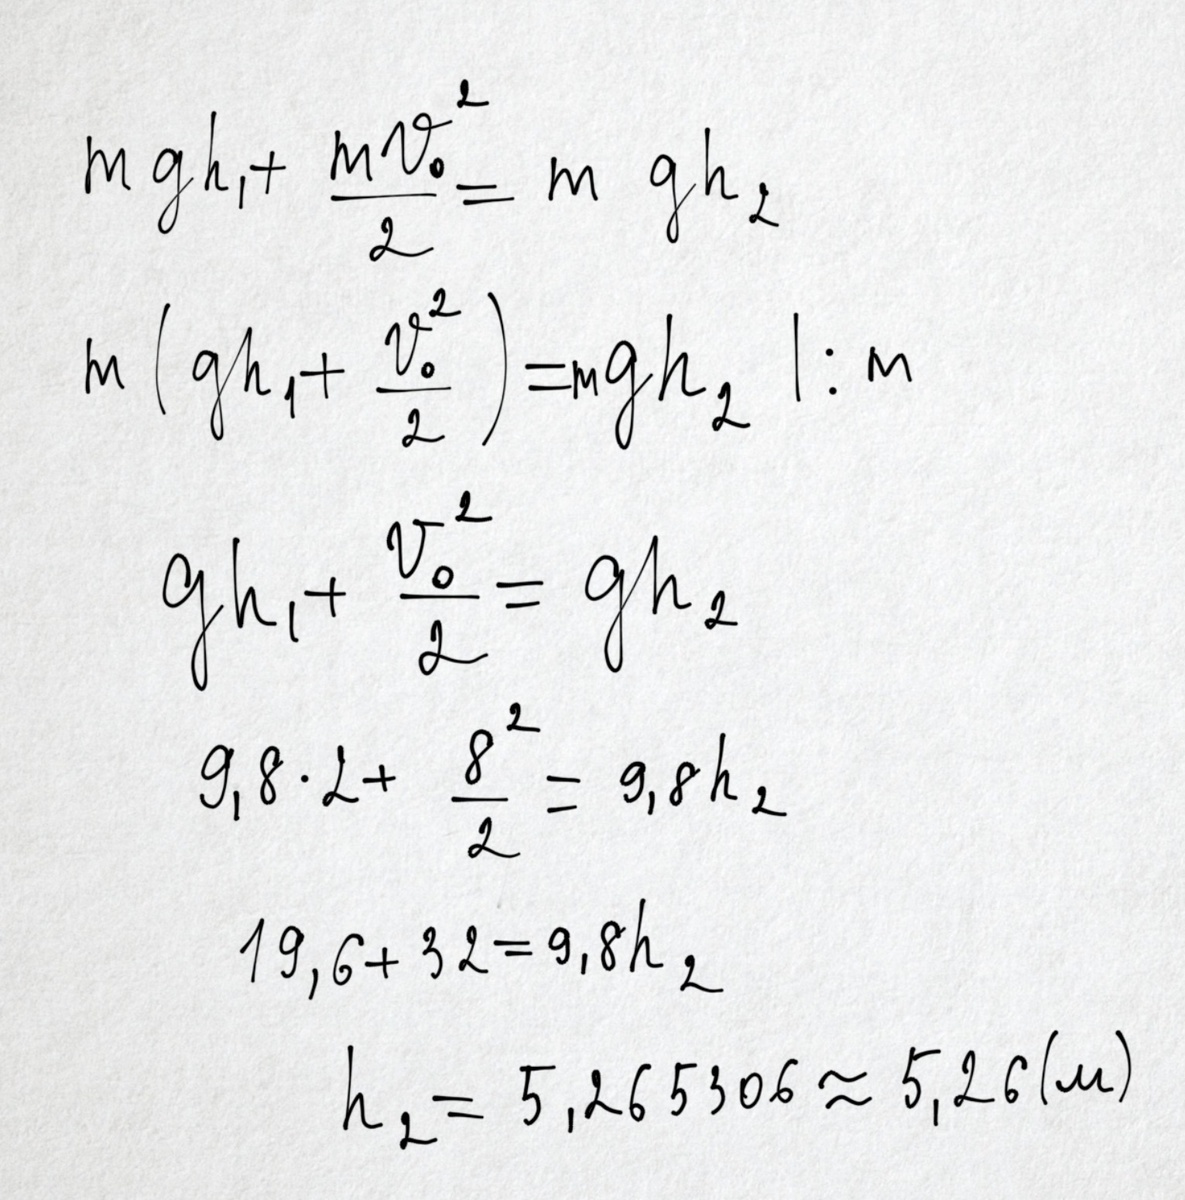 mgh₁ + mv₀²/2 = m gh₂
m(gh₁ + v₀²/2) = mgh₂ | : m
gh₁ + v₀²/2 = gh₂
9,8 · 2 + 8²/2 = 9,8h₂
19,6 + 32 = 9,8h₂
h₂ = 5,265306 ≈ 5,26 (м)